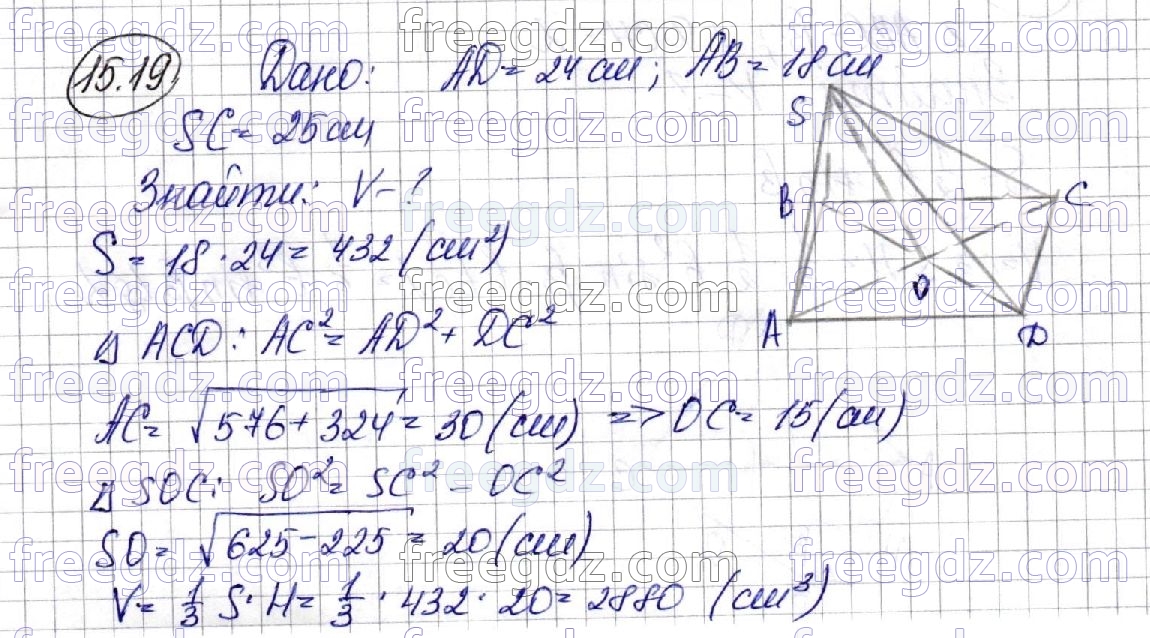 15.19 Дано: AD = 24 см; AB = 18 см
SC = 25 см
Знайти: V - ?
S = 18 · 24 = 432 (см²)
1) ACD: AC² = AD² + DC²
AC = √576 + 324 = 30 (см) => OC = 15 (см)
2) SOC: SO² = SC² - OC²
SO = √625 - 225 = 20 (см)
V = 1/3 S · H = 1/3 · 432 · 20 = 2880 (см³)
S
B
C
O
A
D
freegdz.com